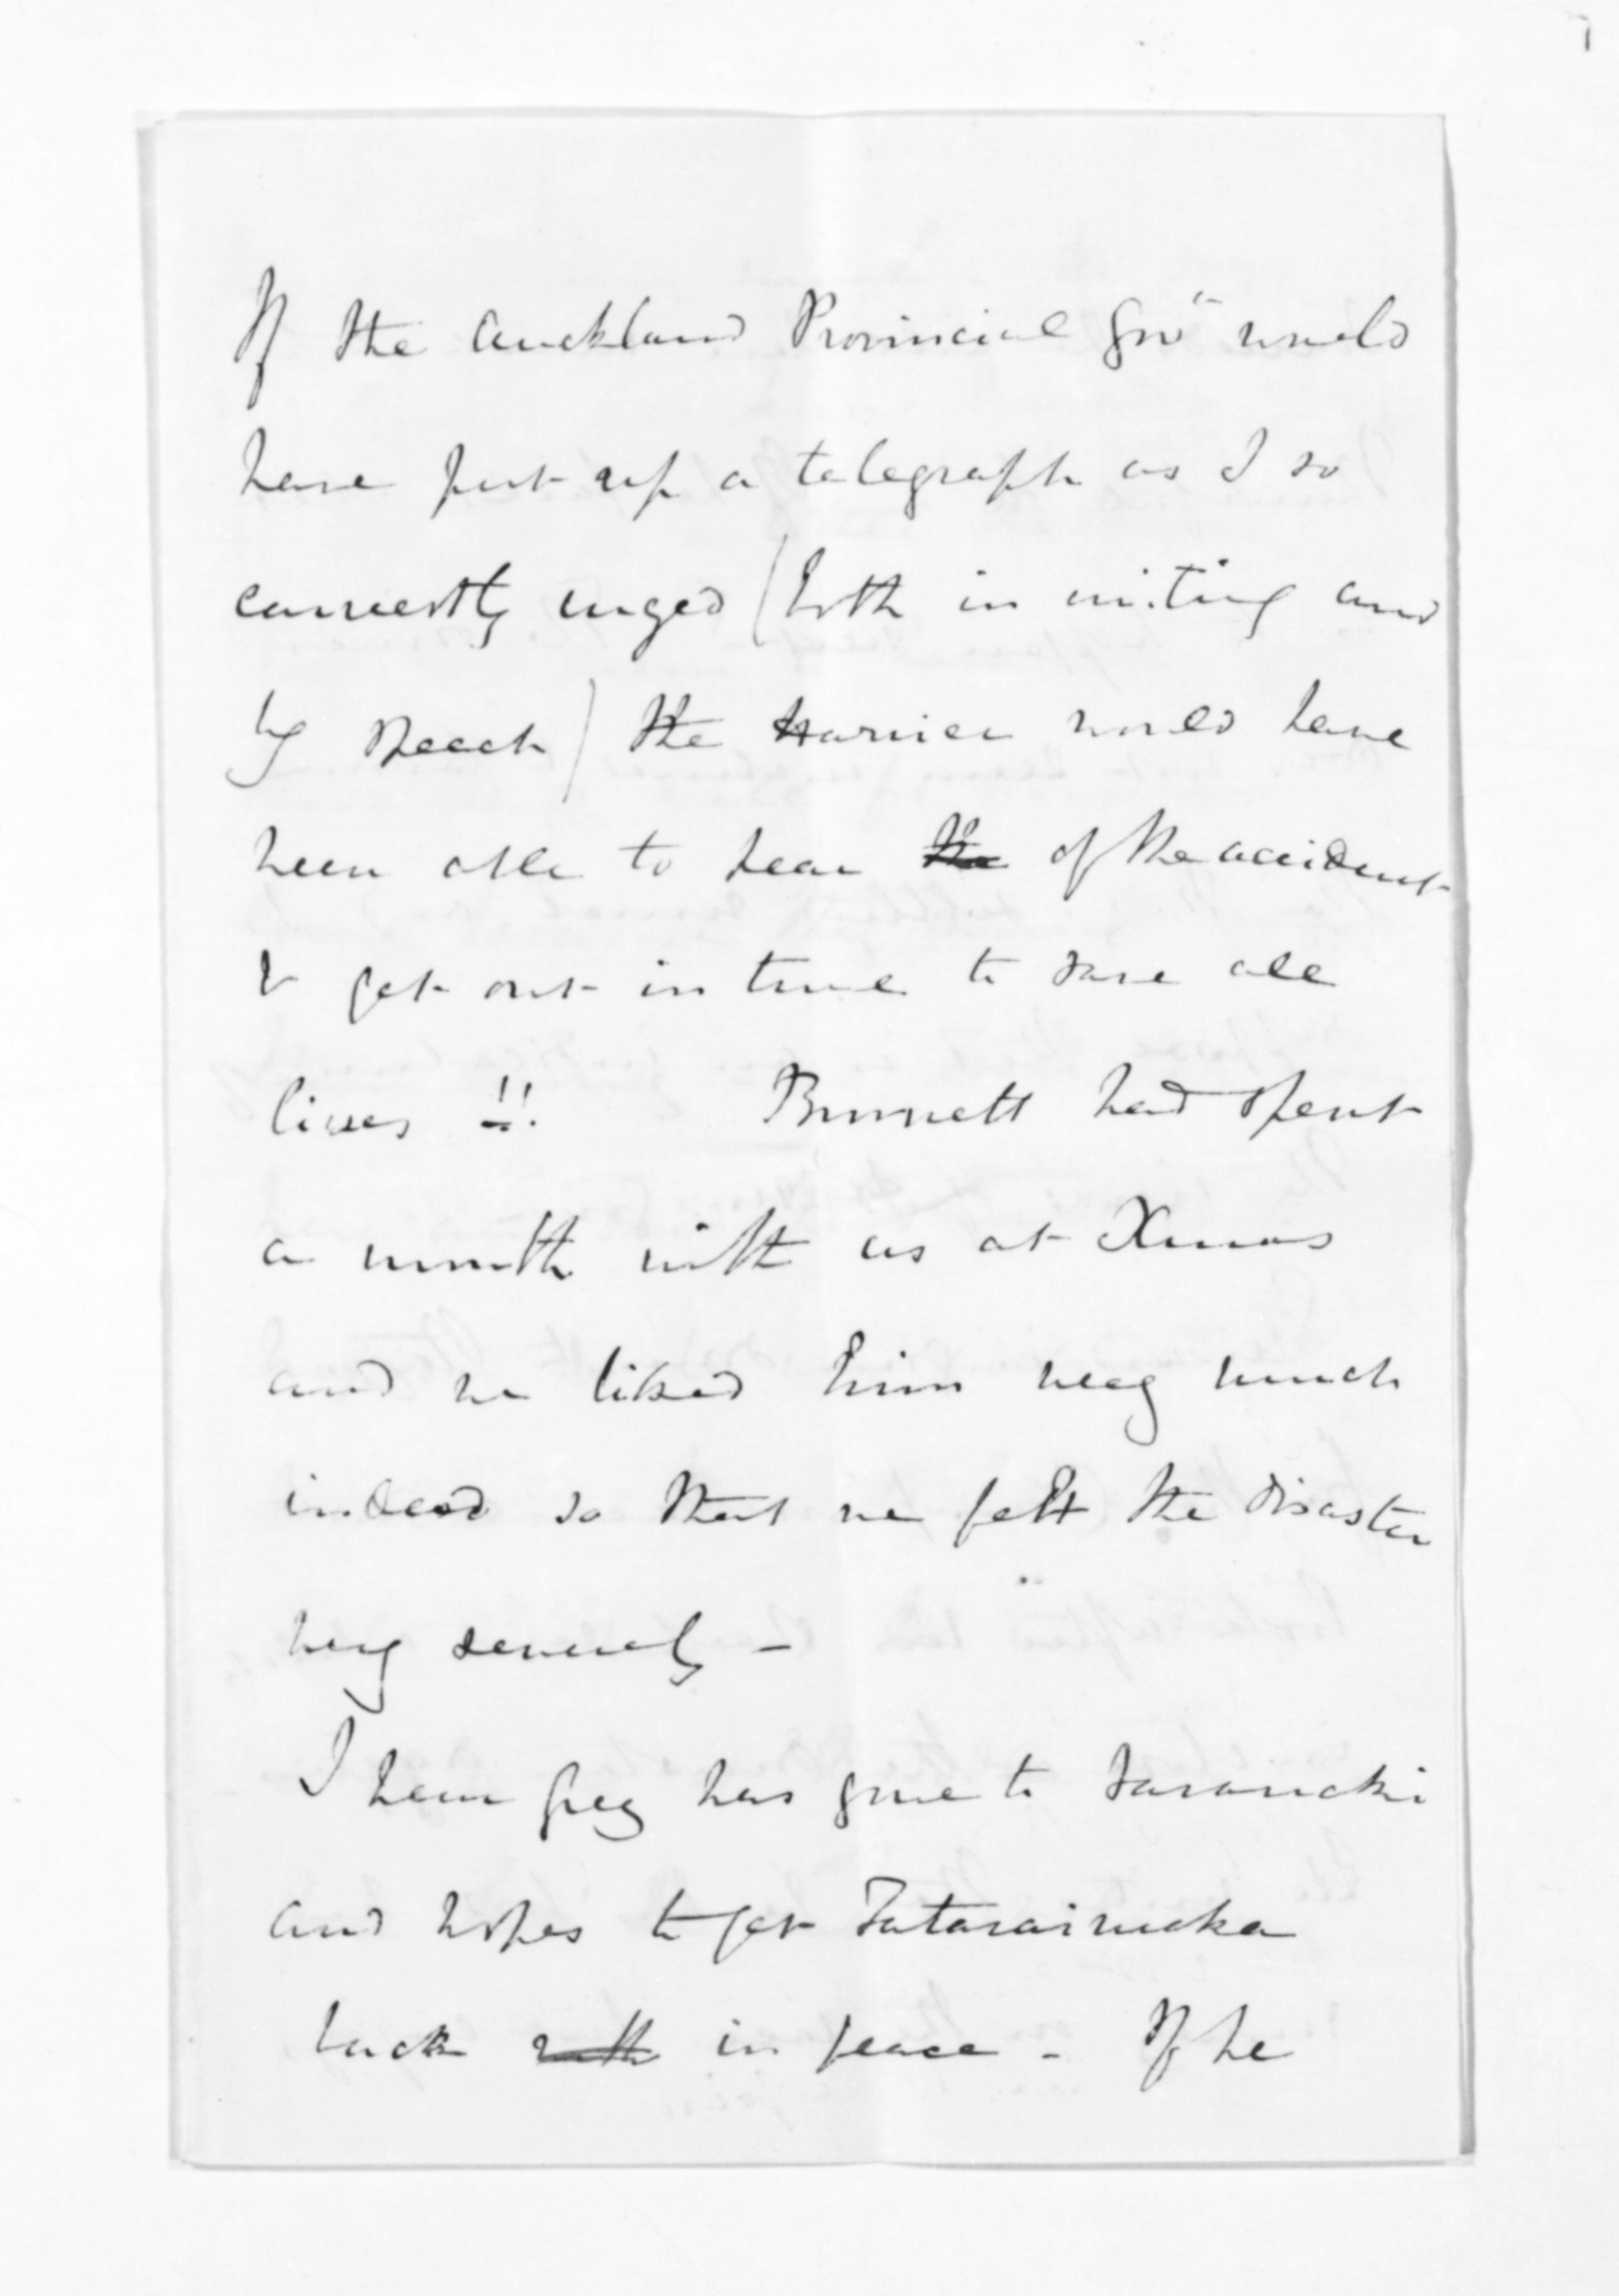 If the Auckland Provincial Govt would
have put up a telegraph as I so
earnestly urged (both in writing and
by speech) the Harrier would have
been able to hear the of the accident
& get out in time to save all
lives !!      Burnett had spent
a month with us at Xmas
and we liked him very much
indeed so that we felt the disaster
very severely -
I hear Grey has gone to Taranaki
and hopes to get Tataraimaka
back with in peace - If he